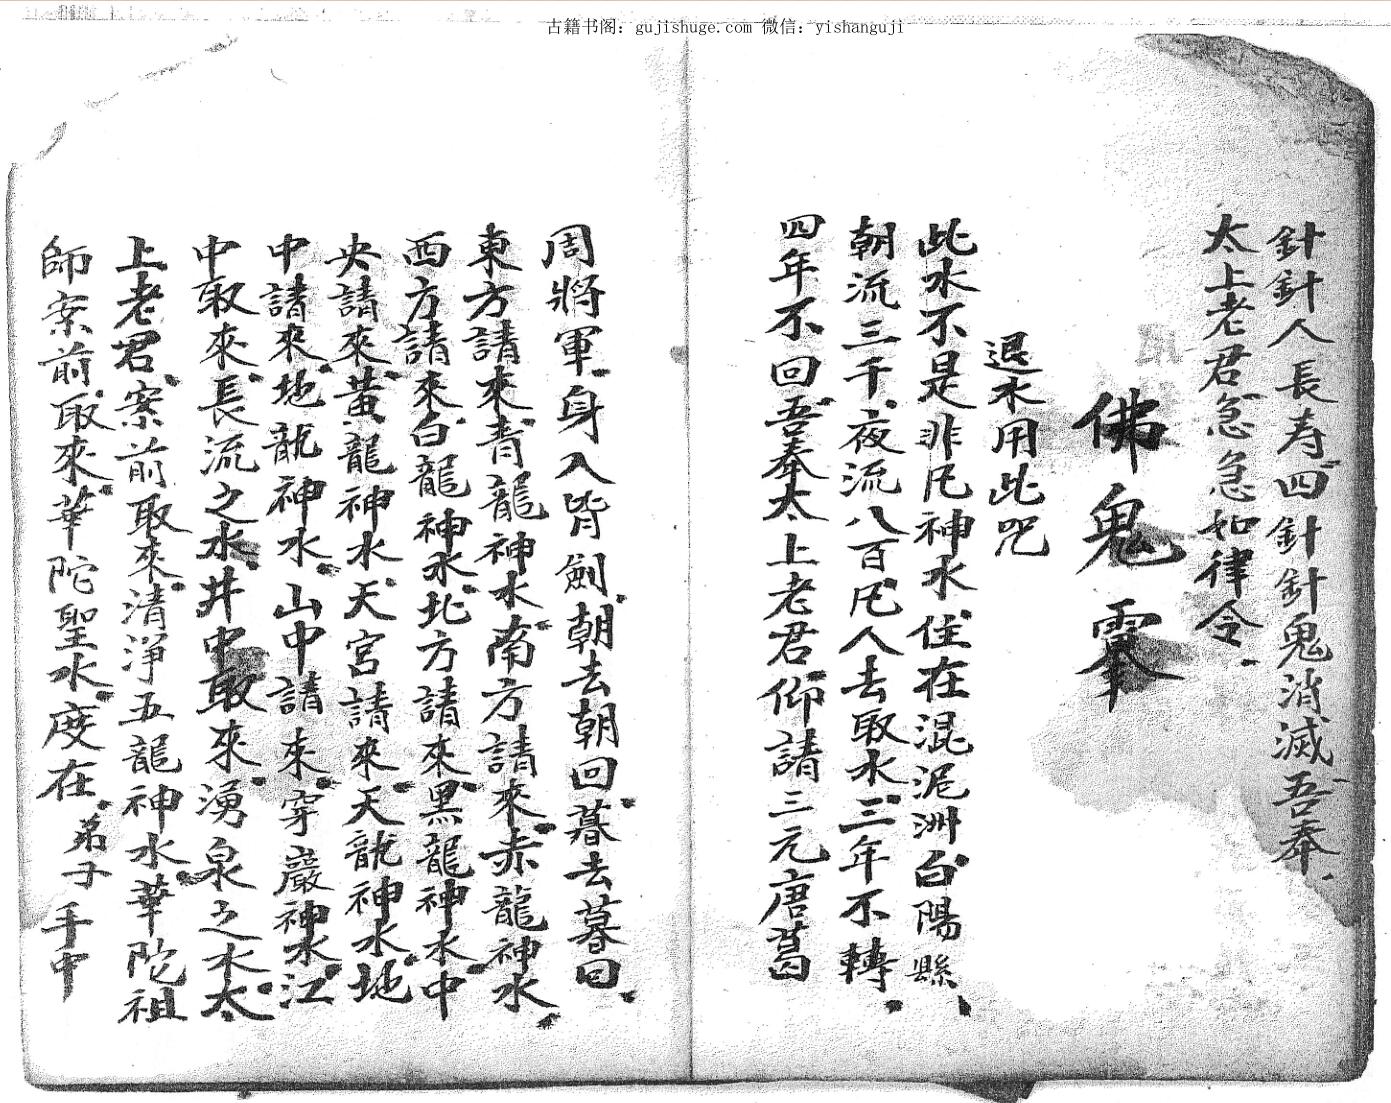 古籍书阁：gujishuge.com 微信：yishanguji
針針人長寿四針針鬼消滅吾奉
太上老君急急如律令
佛鬼
退水用此咒
此水不是非凡神水住在混泥洲白陽縣
朝流三千夜流八百凡人去取水三年不轉
四年不回吾奉太上老君仰請三元唐葛
周將軍身入皆劍朝去朝回暮去暮回
東方請來青龍神水南方請來赤龍神水
西方請來白龍神水北方請來黑龍神水中
央請來黃龍神水天宮請來天龍神水地
中請來地龍神水山中請來穿巖神水江
中取來長流之水井中取來湧泉之水太
上老君案前取來清淨五龍神水華陀祖
師案前取來華陀聖水度在弟子手中